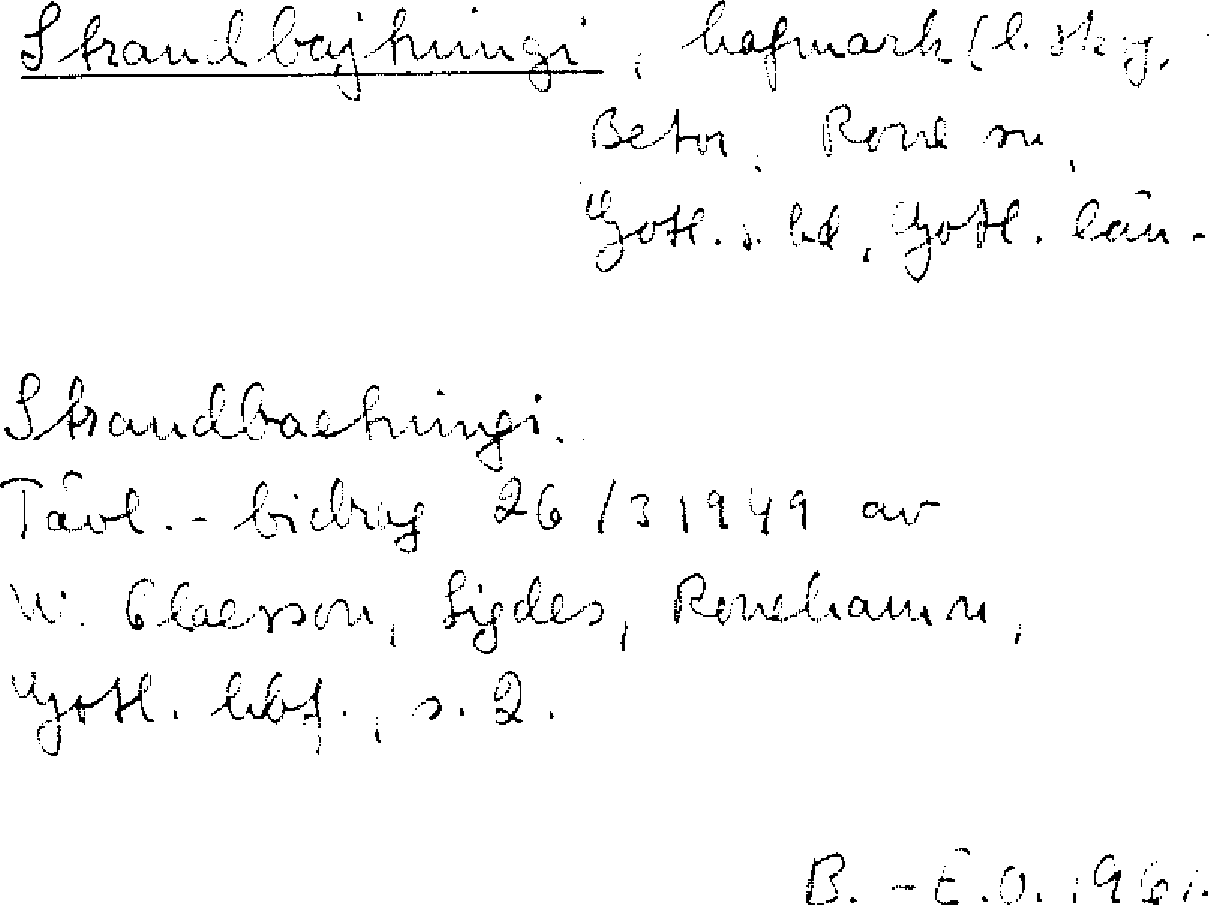 Strandbajtningi, hafmark (l. sky.
Betor, Rone sn,
Gotl. s. hd, Gotl. län.
Strandbaetningi.
Tävl.-bidrag 26/3 1949 av
W. Claesson, Sigdes, Ronehamn,
Gotl. hbf., s. 2.
B.-E.O. 1961.